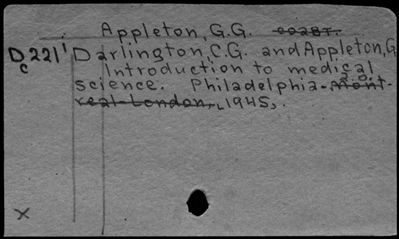 Appleton, G.G. coauт.
D221' Darlington, C.G. and Appleton, G
c Introduction to medical
science. Philadelphia - Mont-
2.0.
real-London, 1945,.
X